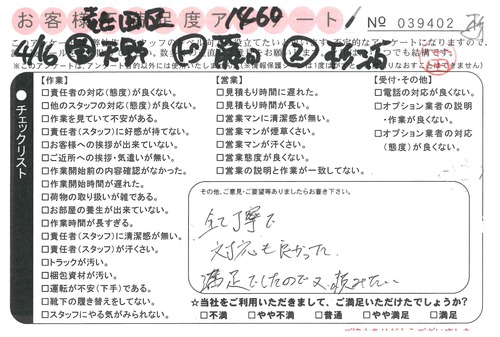 お客様満足度アンケート
№ 039402
4/6
【作業】
□責任者の対応(態度)が良くない。
□他のスタッフの対応(態度)が良くない。
□作業を見ていて不安がある。
□責任者(スタッフ)に好感が持てない。
□お客様への挨拶が出来ていない。
□ご近所への挨拶・気遣いが無い。
□作業開始前の内容確認がなかった。
□作業開始時間が遅れた。
□荷物の取り扱いが雑である。
□お部屋の養生が出来ていない。
□作業時間が長すぎる。
□責任者(スタッフ)に清潔感が無い。
□責任者(スタッフ)が汗くさい。
□トラックが汚い。
□梱包資材が汚い。
□運転が不安(下手)である。
□靴下の履き替えをしてない。
□スタッフにやる気がみられない。
【営業】
□見積もり時間に遅れた。
□見積もり時間が長い。
□営業マンに清潔感が無い。
□営業マンが煙草くさい。
□営業マンが汗くさい。
□営業態度が良くない。
□営業の説明と作業が一致してない。
【受付・その他】
□電話の対応が良くない。
□オプション業者の説明
・作業が良くない。
□オプション業者の対応
(態度)が良くない。
●チェックリスト
その他、ご意見・ご要望等ありましたらお書き下さい。
全て丁寧で
対応も良かった
満足でしたので又頼みたい
☆当社をご利用いただきまして、ご満足いただけたでしょうか?
□不満 □やや不満 □普通 □やや満足 □満足